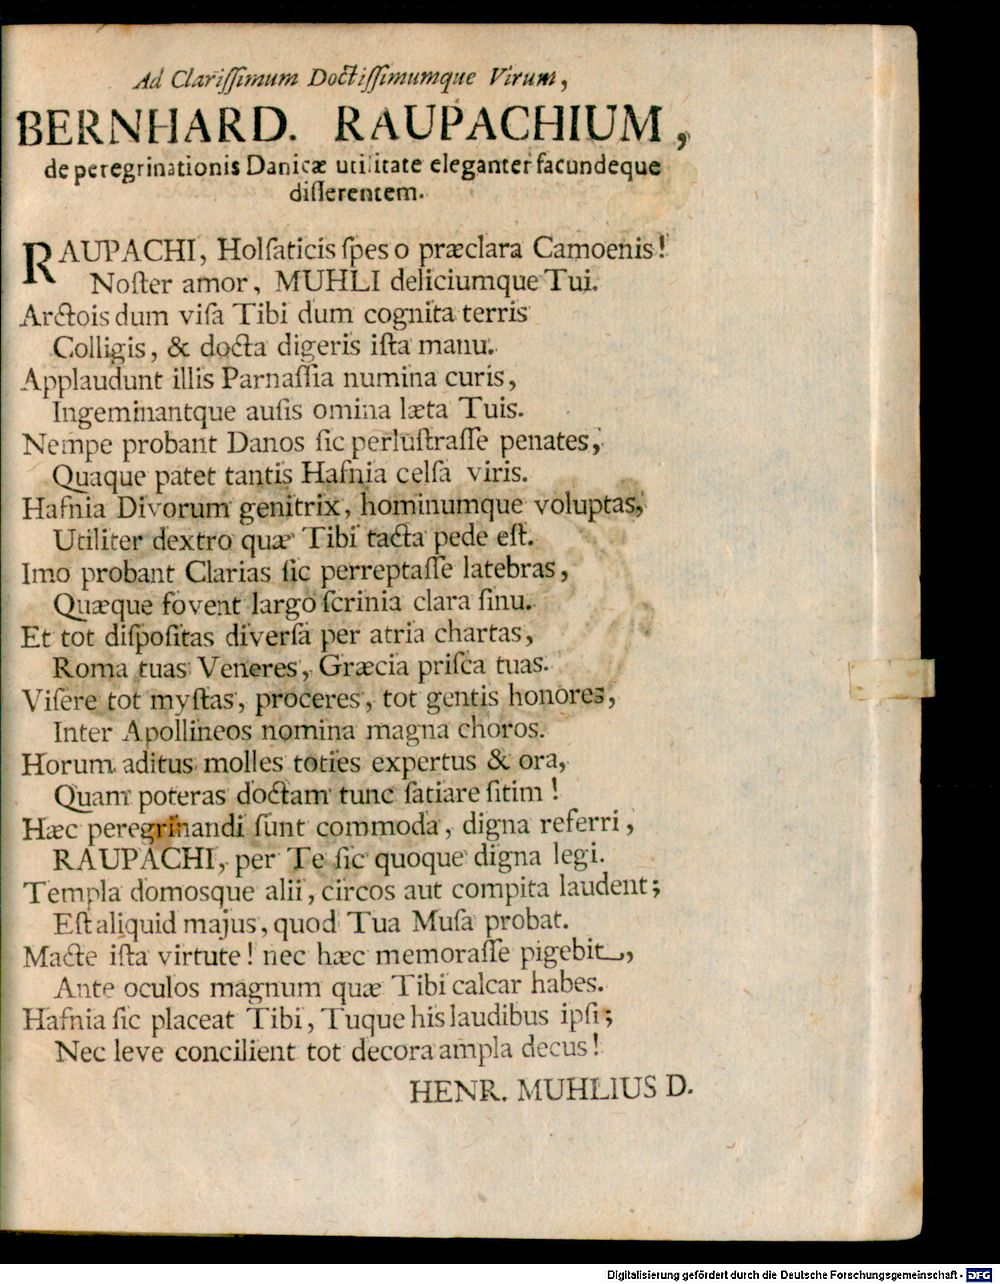 Ad Clariſſimum Doctiſſimumque Virum,
BERNHARD. RAUPACHIUM,
de peregrinationis Danicæ utilitate eleganter facundeque
diſſerentem.
RAUPACHI, Holſaticis ſpes o præclara Camoenis!
Noſter amor, MUHLI deliciumque Tui.
Arctois dum viſa Tibi dum cognita terris
Colligis, & docta digeris iſta manu.
Applaudunt illis Parnaſſia numina curis,
Ingeminantque auſis omina læta Tuis.
Nempe probant Danos ſic perluſtraſſe penates,
Quaque patet tantis Hafnia celſa viris.
Hafnia Divorum genitrix, hominumque voluptas,
Utiliter dextro quæ Tibi tacta pede eſt.
Imo probant Clarias ſic perreptaſſe latebras,
Quæque fovent largo ſcrinia clara ſinu.
Et tot diſpoſitas diverſa per atria chartas,
Roma tuas Veneres, Græcia priſca tuas.
Viſere tot myſtas, proceres, tot gentis honores,
Inter Apollineos nomina magna choros.
Horum aditus molles toties expertus & ora,
Quam poteras doctam tunc ſatiare ſitim!
Hæc peregrinandi ſunt commoda, digna referri,
RAUPACHI, per Te ſic quoque digna legi.
Templa domosque alii, circos aut compita laudent;
Eſt aliquid majus, quod Tua Muſa probat.
Macte iſta virtute! nec hæc memoraſſe pigebit,
Ante oculos magnum quæ Tibi calcar habes.
Hafnia ſic placeat Tibi, Tuque his laudibus ipſi;
Nec leve concilient tot decora ampla decus!
HENR. MUHLIUS D.
Digitalisierung gefördert durch die Deutsche Forschungsgemeinschaft - DFG